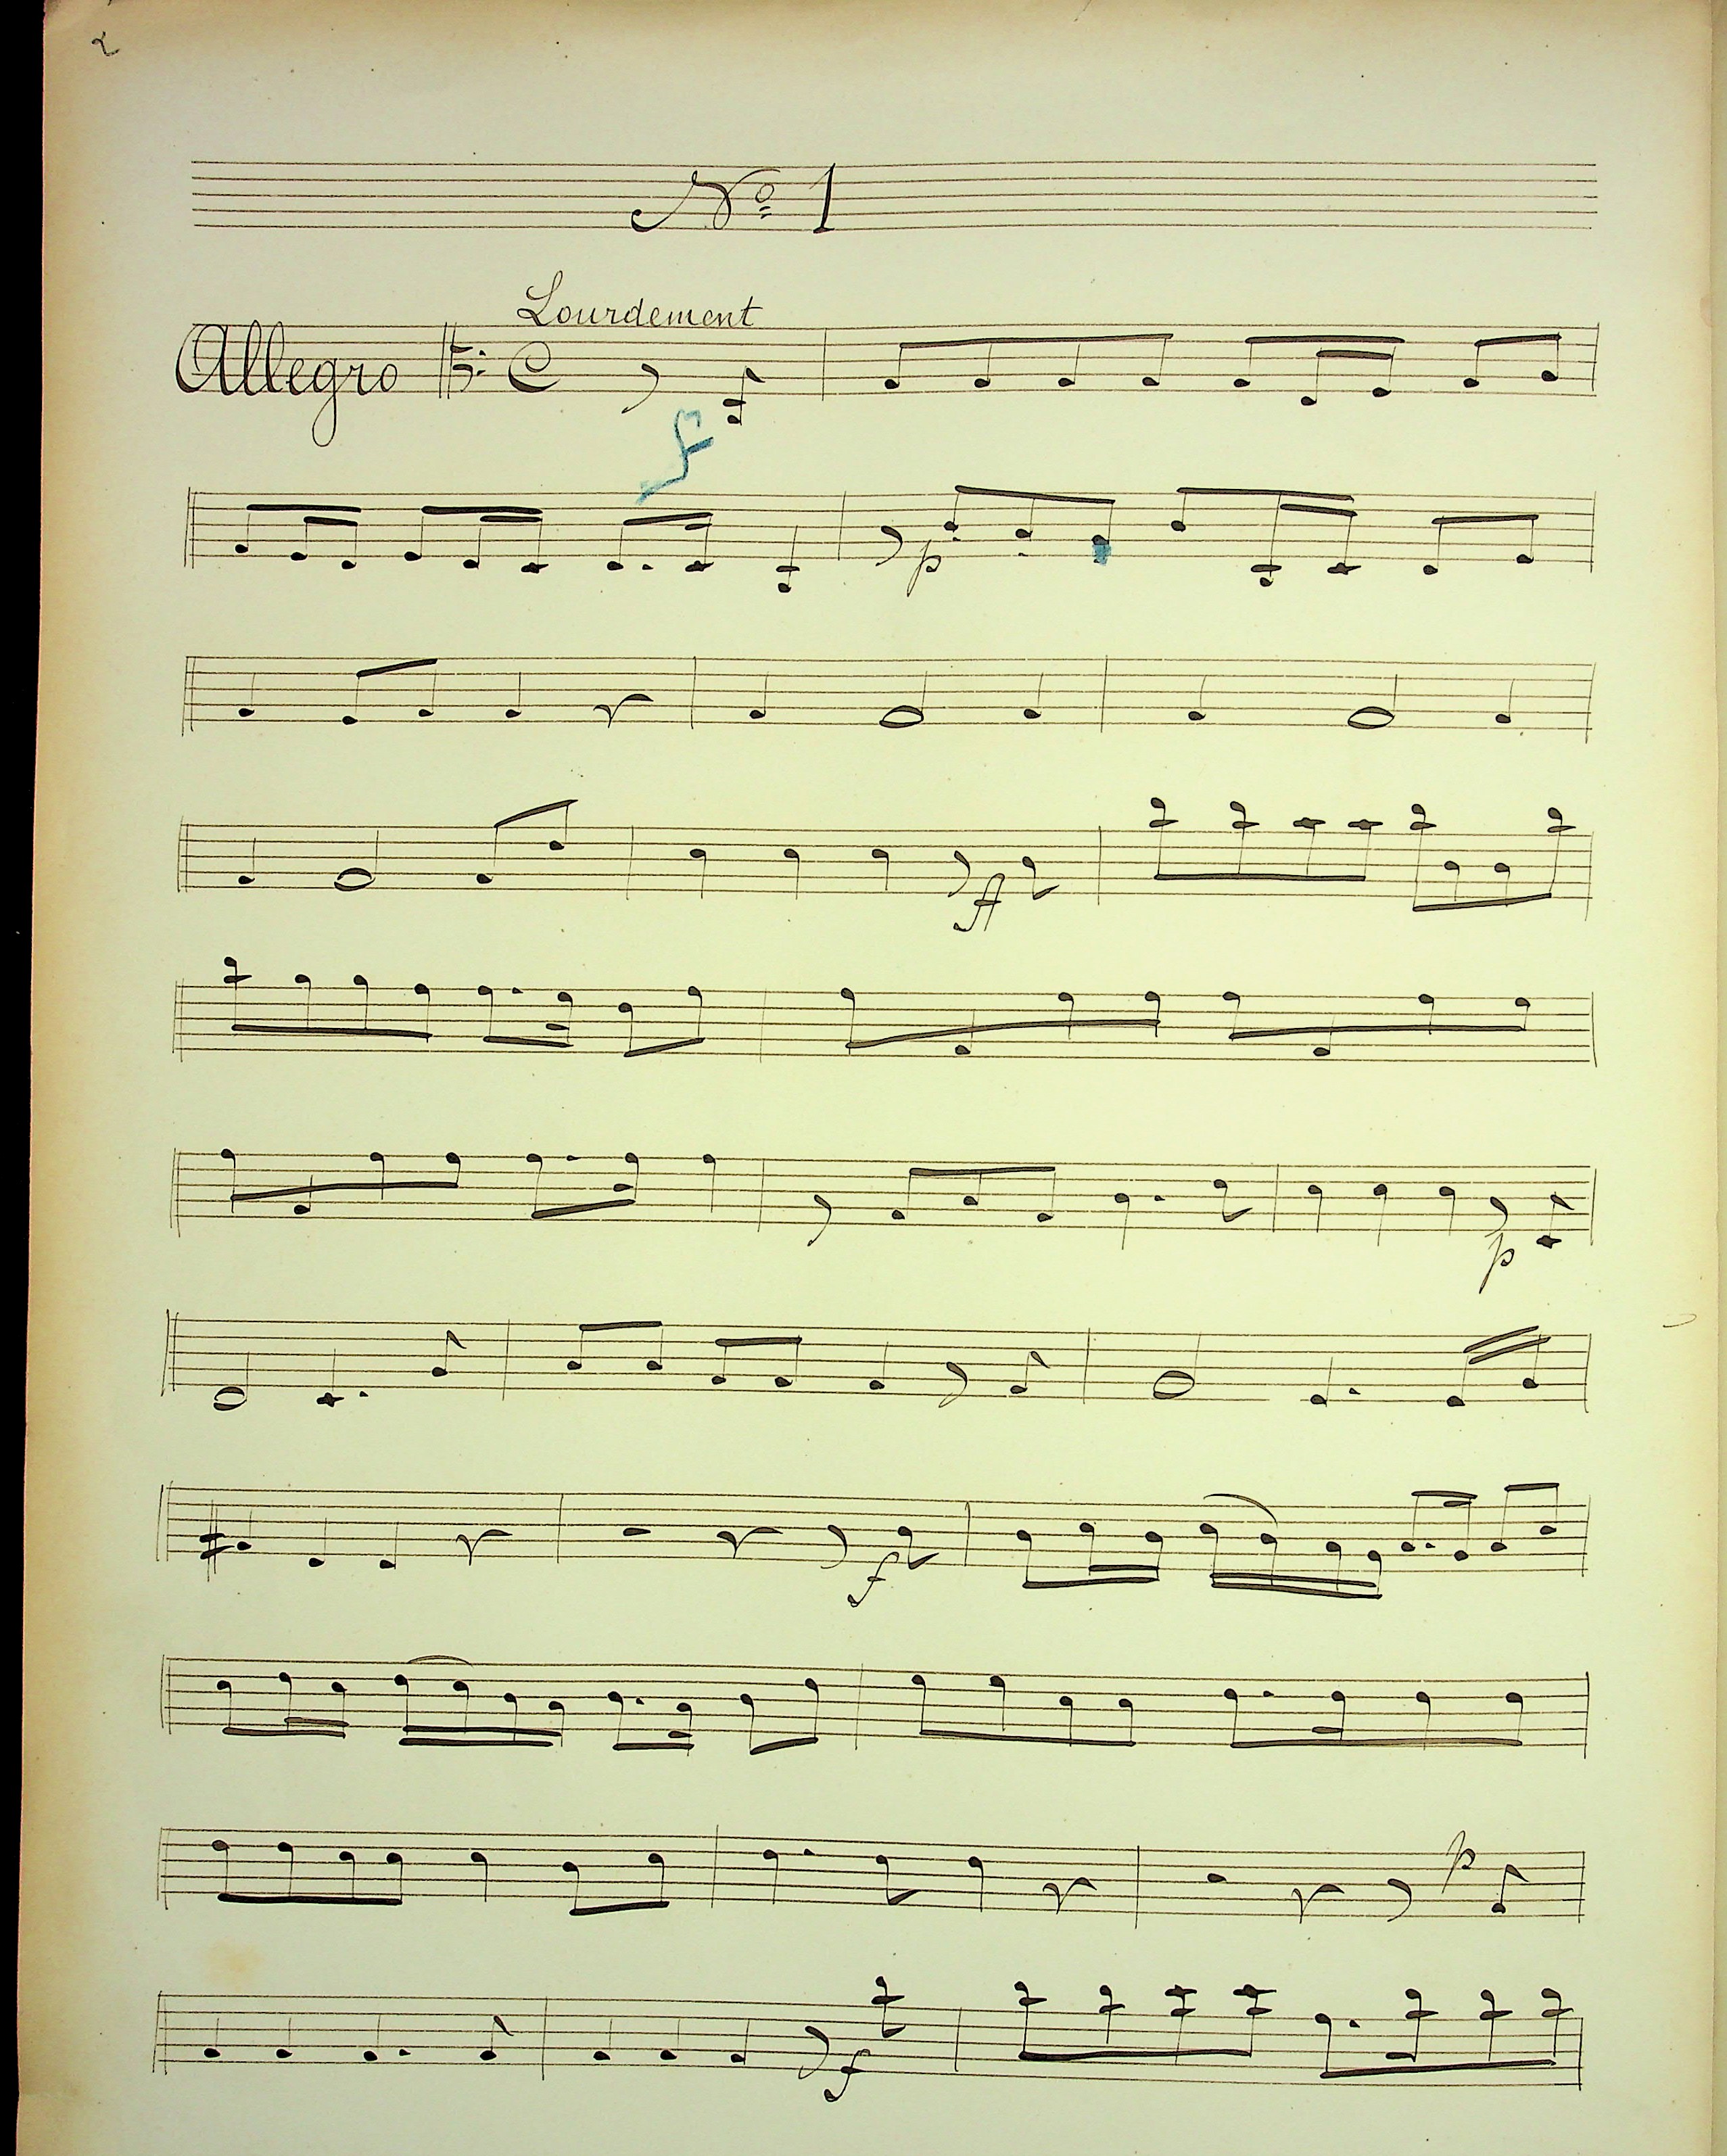 2
Nº 1
Lourdement
Allegro C
f
p
ff
p
f
p
f